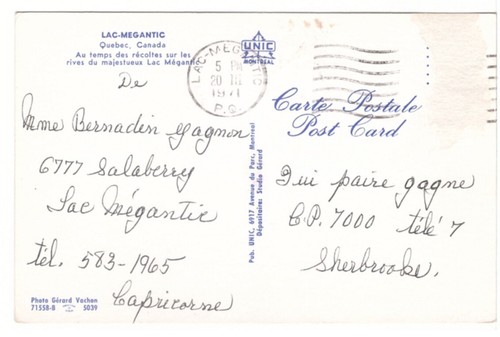 LAC-MEGANTIC
Quebec, Canada
Au temps des récoltes sur les
rives du majestueux Lac Mégantic
De
Mme Bernadin Gagnon
6777 Salaberry
Lac Mégantic
tél. 583-1965
Capricorne
Photo Gérard Vachon
71558-B 5039
LAC-MEGANTIC
5 PM
20 III
1971
P.Q.
UNIC
MONTREAL
Pub. UNIC, 6917 Avenue du Parc, Montreal
Dépositaire: Studio Gérard
Carte Postale
Post Card
Qui paire gagne
C.P. 7000 télé 7
Sherbrooke.